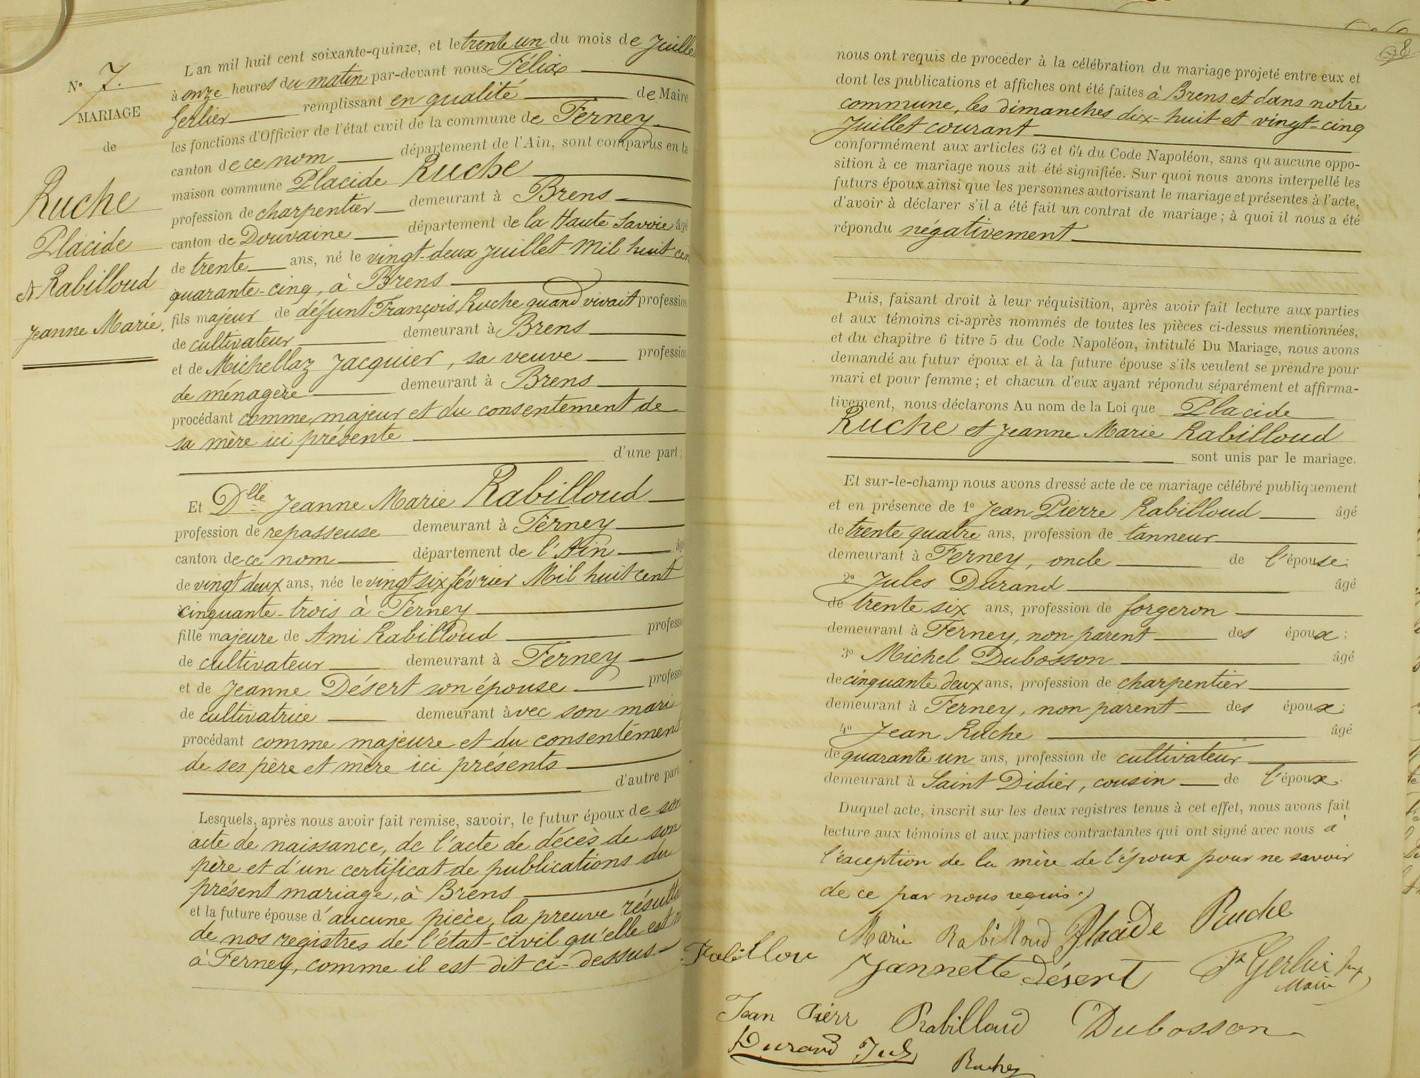 N° 7.
MARIAGE
de
Ruche
Placide
et Rabilloud
Jeanne Marie.
L'an mil huit cent soixante-quinze, et le trente un du mois de Juille
à onze heures du matin par-devant nous Félix
Gerlier remplissant en qualité de Maire
les fonctions d'Officier de l'état civil de la commune de Ferney
canton de ce nom département de l'Ain, sont comparus en la
maison commune Placide Ruche
profession de charpentier demeurant à Brens
canton de Douvaine département de la Haute Savoie âgé
de trente ans, né le vingt-deux Juillet Mil huit cen
quarante-cinq, à Brens
fils majeur de défunt François Ruche quand vivait profession
de cultivateur demeurant à Brens
et de Michellaz Jacquier, sa veuve profession
de ménagère demeurant à Brens
procédant comme majeur et du consentement de
sa mère ici présente
d'une part;
Et Dlle Jeanne Marie Rabilloud
profession de repasseuse demeurant à Ferney
canton de ce nom département de l'Ain âg
de vingt deux ans, née le vingt six février Mil huit cent
cinquante trois à Ferney
fille majeure de Ami Rabilloud profess
de cultivateur demeurant à Ferney
et de Jeanne Désert son épouse profess
de cultivatrice demeurant avec son mari
procédant comme majeure et du consentement
de ses père et mère ici présents
d'autre part
Lesquels, après nous avoir fait remise, savoir, le futur époux de son
acte de naissance, de l'acte de décès de son
père et d'un certificat de publications du
présent mariage, à Brens
et la future épouse d'aucune pièce, la preuve résulta
de nos registres de l'état-civil qu'elle est n
à Ferney, comme il est dit ci-dessus
98
nous ont requis de procéder à la célébration du mariage projeté entre eux et
dont les publications et affiches ont été faites à Brens et dans notre
commune, les dimanches dix-huit et vingt-cinq
Juillet courant
conformément aux articles 63 et 64 du Code Napoléon, sans qu'aucune oppo-
sition à ce mariage nous ait été signifiée. Sur quoi nous avons interpellé les
futurs époux ainsi que les personnes autorisant le mariage et présentes à l'acte,
d'avoir à déclarer s'il a été fait un contrat de mariage; à quoi il nous a été
répondu négativement
Puis, faisant droit à leur réquisition, après avoir fait lecture aux parties
et aux témoins ci-après nommés de toutes les pièces ci-dessus mentionnées,
et du chapitre 6 titre 5 du Code Napoléon, intitulé Du Mariage, nous avons
demandé au futur époux et à la future épouse s'ils veulent se prendre pour
mari et pour femme; et chacun d'eux ayant répondu séparément et affirma-
tivement, nous déclarons Au nom de la Loi que Placide
Ruche et Jeanne Marie Rabilloud
sont unis par le mariage.
Et sur-le-champ nous avons dressé acte de ce mariage célébré publiquement
et en présence de 1° Jean Pierre Rabilloud âgé
de trente quatre ans, profession de tanneur
demeurant à Ferney, oncle de l'épouse
2° Jules Durand âgé
de trente six ans, profession de forgeron
demeurant à Ferney, non parent des époux;
3° Michel Dubosson âgé
de cinquante deux ans, profession de charpentier
demeurant à Ferney, non parent des époux;
4° Jean Ruche âgé
de quarante un ans, profession de cultivateur
demeurant à Saint Didier, cousin de l'époux.
Duquel acte, inscrit sur les deux registres tenus à cet effet, nous avons fait
lecture aux témoins et aux parties contractantes qui ont signé avec nous à
l'exception de la mère de l'époux pour ne savoir
de ce par nous requis.
Marie Rabilloud Placide Ruche
Rabillou Jannette Désert Fx Gerlier
Maire
Jean Pierr Rabilloud Dubosson
Durand Jul
Ruche